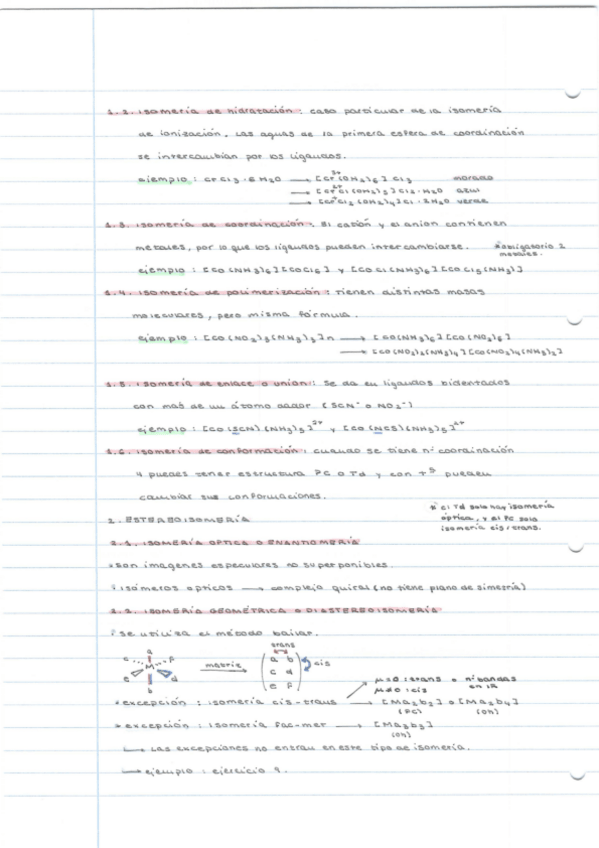 1.2. isomería de hidratación: caso particular de la isomería
de ionización, las aguas de la primera esfera de coordinación
se intercambian por los ligandos.
ejemplo: CrCl3·6H2O → [Cr(OH2)6]Cl3 morado
→ [CrCl(OH2)5]Cl2·H2O azul
→ [CrCl2(OH2)4]Cl·2H2O verde
1.3. isomería de coordinación: El catión y el anion contienen
metales, por lo que los ligandos pueden intercambiarse. *obligatorio 2
metales.
ejemplo: [Co(NH3)6][CoCl6] y [CoCl(NH3)5][CoCl5(NH3)]
1.4. isomería de polimerización: tienen distintas masas
moleculares, pero misma fórmula.
ejemplo: [Co(NO2)3(NH3)3]n → [Co(NH3)6][Co(NO2)6]
→ [Co(NO2)2(NH3)4][Co(NO2)4(NH3)2]
1.5. isomería de enlace o unión: Se da en ligandos bidentados
con más de un átomo dador (SCN- o NO2-)
ejemplo: [Co(SCN)(NH3)5]2+ y [Co(NCS)(NH3)5]2+
1.6. isomería de conformación: cuando se tiene nº coordinación
4 puedes tener estructura PC o Td y con pueden
cambiar sus conformaciones.
* el Td solo hay isomería
óptica, y el PC solo
isomería cis/trans.
2. ESTEREOISOMERÍA
2.1. ISOMERÍA OPTICA O ENANTIOMERÍA
*son imágenes especulares no superponibles.
*isómeros opticos → complejo quiral (no tiene plano de simetría)
2.2. ISOMERÍA GEOMÉTRICA O DIASTEREOISOMERÍA
*se utiliza el método bailar.
a c f M e d b
matriz
trans
a b
c d
e f
cis
μ=0: trans nº bandas
μ≠0: cis en IR
*excepción: isomería cis-trans → [Ma2b2] o [Ma2b4]
(PC) (Oh)
*excepción: isomería fac-mer → [Ma3b3]
(Oh)
→ Las excepciones no entran en este tipo de isomería.
→ ejemplo: ejercicio 9.